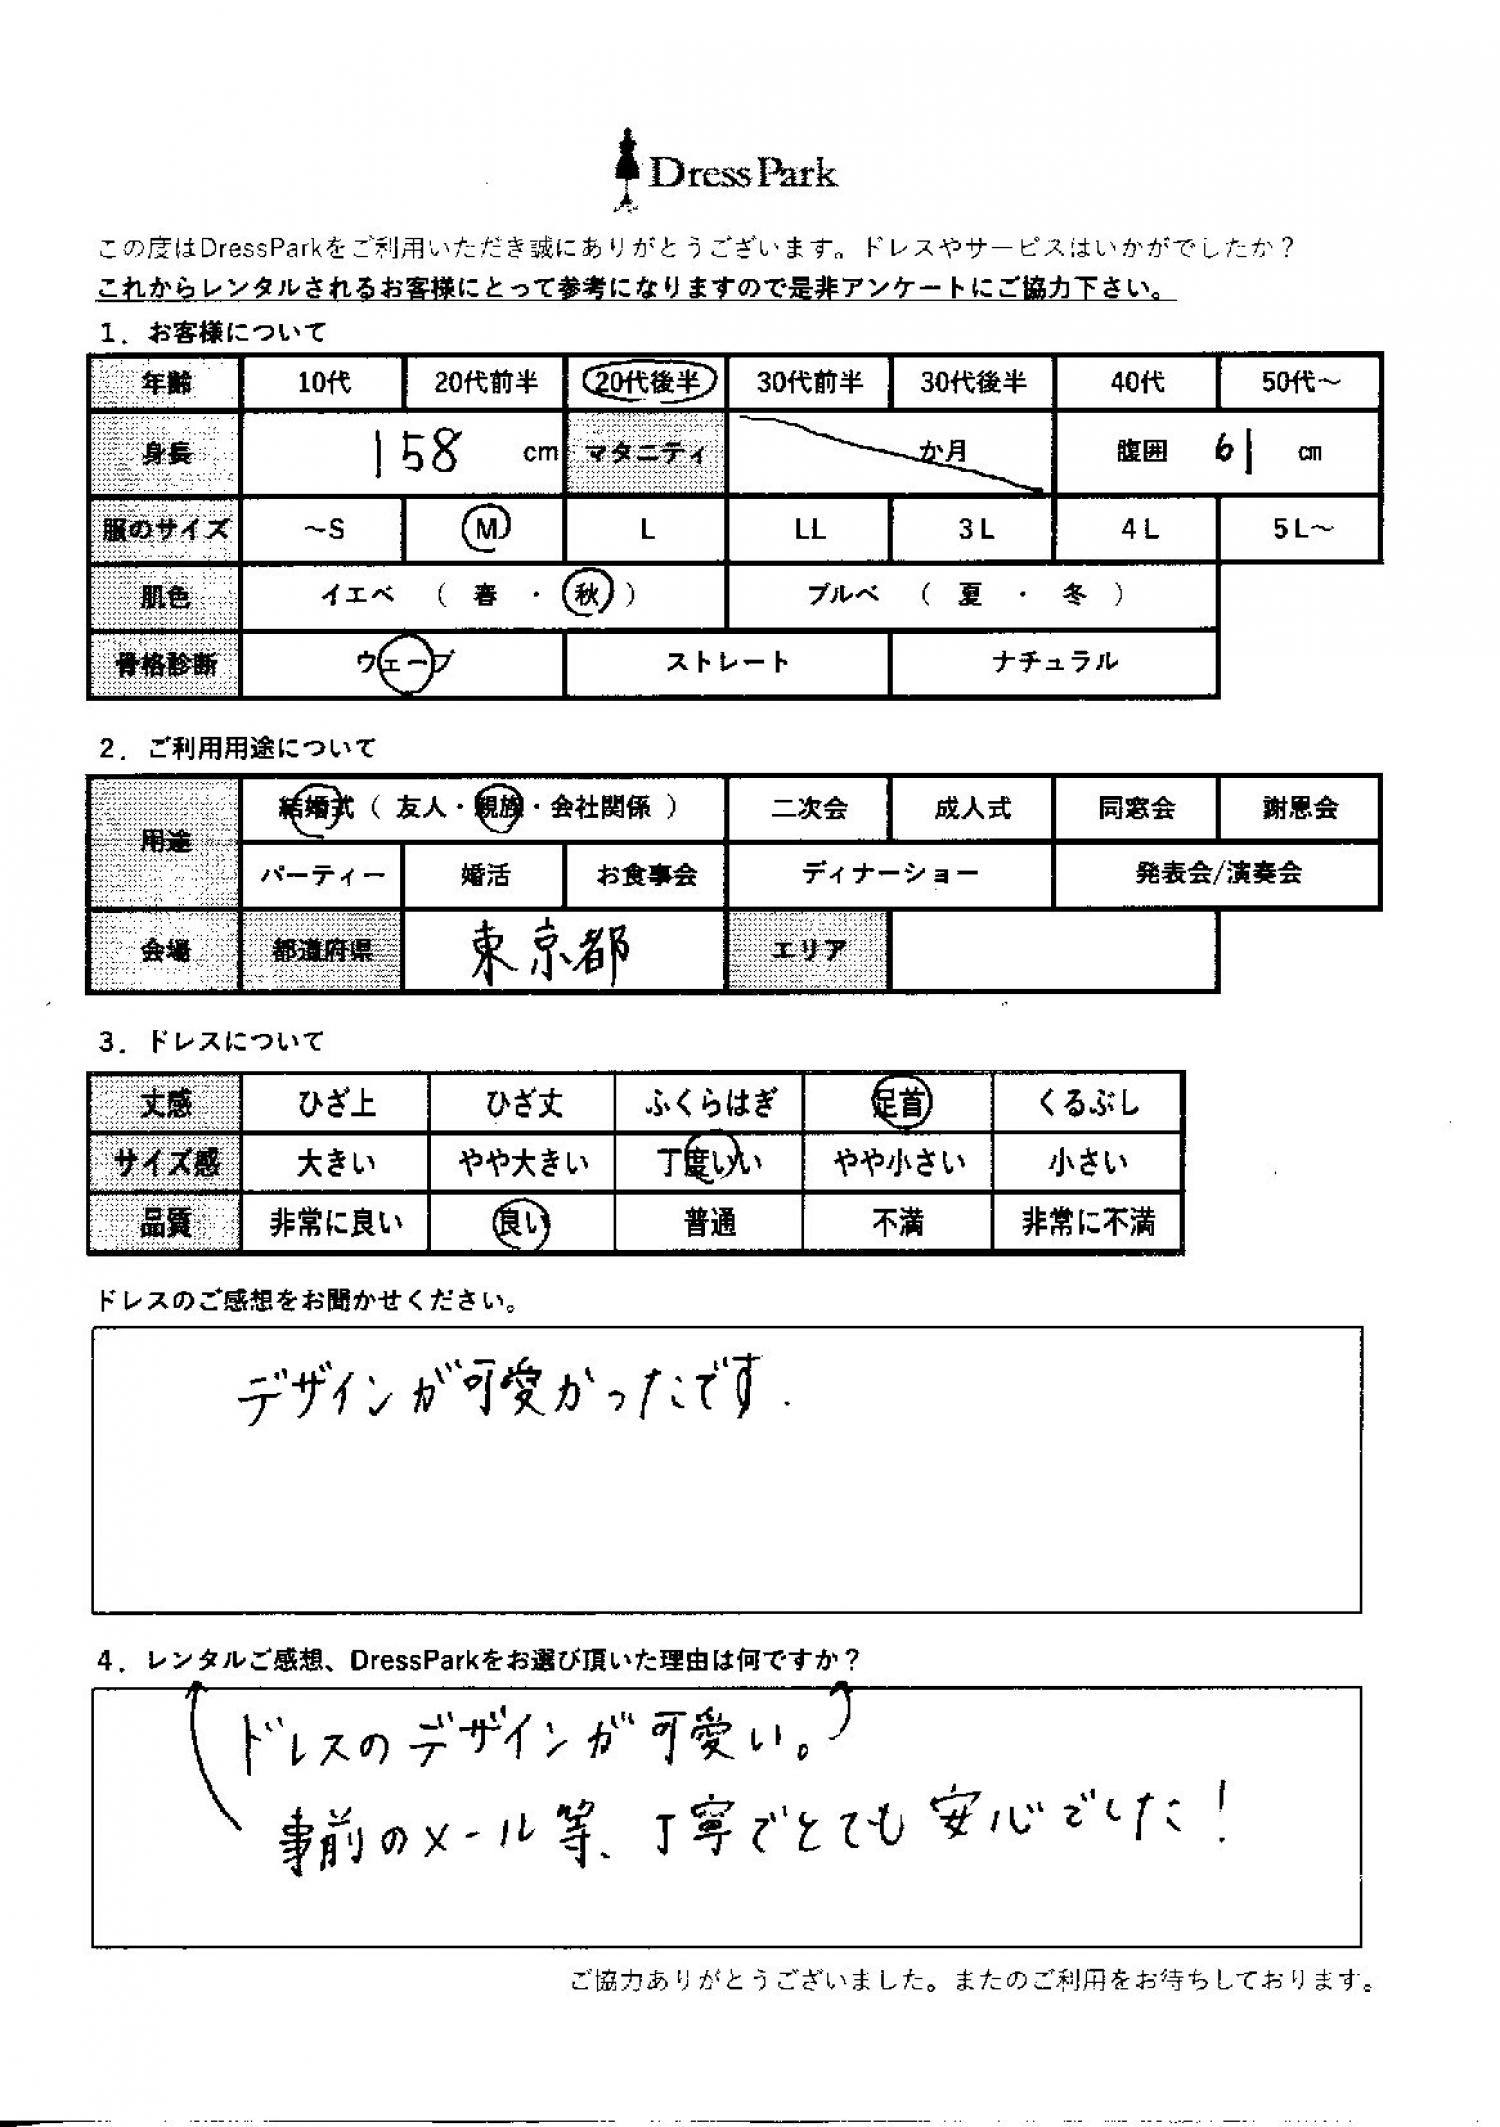 DressPark
この度はDressParkをご利用いただき誠にありがとうございます。ドレスやサービスはいかがでしたか？
これからレンタルされるお客様にとって参考になりますので是非アンケートにご協力下さい。
1．お客様について
年齢 10代 20代前半 20代後半 30代前半 30代後半 40代 50代～
身長 158 cm マタニティ か月 腹囲 61 cm
服のサイズ ～S M L LL 3L 4L 5L～
肌色 イエベ （ 春 ・ 秋 ） ブルベ （ 夏 ・ 冬 ）
骨格診断 ウェーブ ストレート ナチュラル
2．ご利用用途について
用途 結婚式（ 友人・親族・会社関係 ） 二次会 成人式 同窓会 謝恩会
パーティー 婚活 お食事会 ディナーショー 発表会/演奏会
会場 都道府県 東京都 エリア
3．ドレスについて
丈感 ひざ上 ひざ丈 ふくらはぎ 足首 くるぶし
サイズ感 大きい やや大きい 丁度いい やや小さい 小さい
品質 非常に良い 良い 普通 不満 非常に不満
ドレスのご感想をお聞かせください。
デザインが可愛かったです.
4．レンタルご感想、DressParkをお選び頂いた理由は何ですか？
ドレスのデザインが可愛い。
事前のメール等、丁寧でとても安心でした！
ご協力ありがとうございました。またのご利用をお待ちしております。